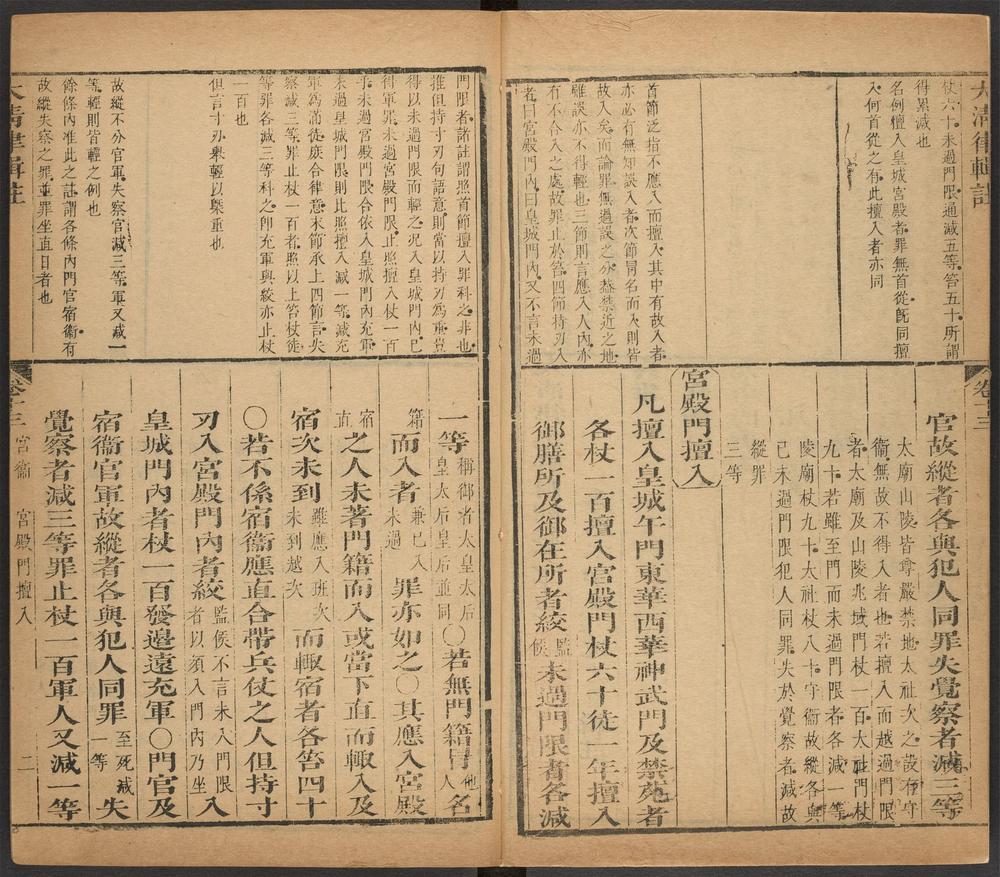 大清律輯註
卷十三
杖六十未過門限通減五等笞五十所謂
得累減也
名例擅入皇城宮殿者罪無首從既同擅
入何首從之有此擅入者亦同
首節泛指不應入而擅入其中有故入者
亦必有無知誤入者次節冒名而入則皆
故入矣而論罪無過誤之分蓋禁近之地
雖誤亦不得輕也三節則言應入人內亦
有不合入之處故罪止於笞四節持刃入
者曰宮殿門內曰皇城門內又不言未過
官故縱者各與犯人同罪失覺察者減三等
太廟山陵皆尊嚴禁地太社次之設有守
衞無故不得入者也若擅入而越過門限
者太廟及山陵兆域門杖一百太社門杖
九十若雖至門而未過門限者各減一等
陵廟杖九十太社杖八十守衞故縱各與
已未過門限犯人同罪失於覺察者減故
縱罪
三等
宮殿門擅入
凡擅入皇城午門東華西華神武門及禁苑者
各杖一百擅入宮殿門杖六十徒一年擅入
御膳所及御在所者絞監候未過門限者各減
門限者諸註謂照首節擅入罪科之非也
推但持寸刃句語意則當以持刃為重豈
得以未過門限而輕之況入皇城門內已
得軍罪未過宮殿門限止照擅入杖一百
乎未過宮殿門限合依入皇城門內充軍
未過皇城門限則比照擅入減一等減充
軍為滿徒庶合律意末節承上四節言失
察減三等罪止杖一百者照以上笞杖徒
等罪各減三等科之即充軍與絞亦止杖
一百也
但言寸刃舉輕以槩重也
故縱不分官軍失察官減三等軍又減一
等輕則皆輕之例也
餘條內准此之註謂各條內門官宿衞有
故縱失察之罪並罪坐直日者也
一等稱御者太皇太后皇太后皇后並同〇若無門籍冒他人名
籍而入者兼已入未過罪亦如之〇其應入宮殿
宿直之人未著門籍而入或當下直而輙入及
宿次未到雖應入班次未到越次而輙宿者各笞四十
〇若不係宿衞應直合帶兵仗之人但持寸
刃入宮殿門內者絞監候不言未入門限者以須入門內乃坐入
皇城門內者杖一百發邊遠充軍〇門官及
宿衞官軍故縱者各與犯人同罪至死減一等失
覺察者減三等罪止杖一百軍人又減一等
大清律輯註
卷十三 宮衞 宮殿門擅入 二